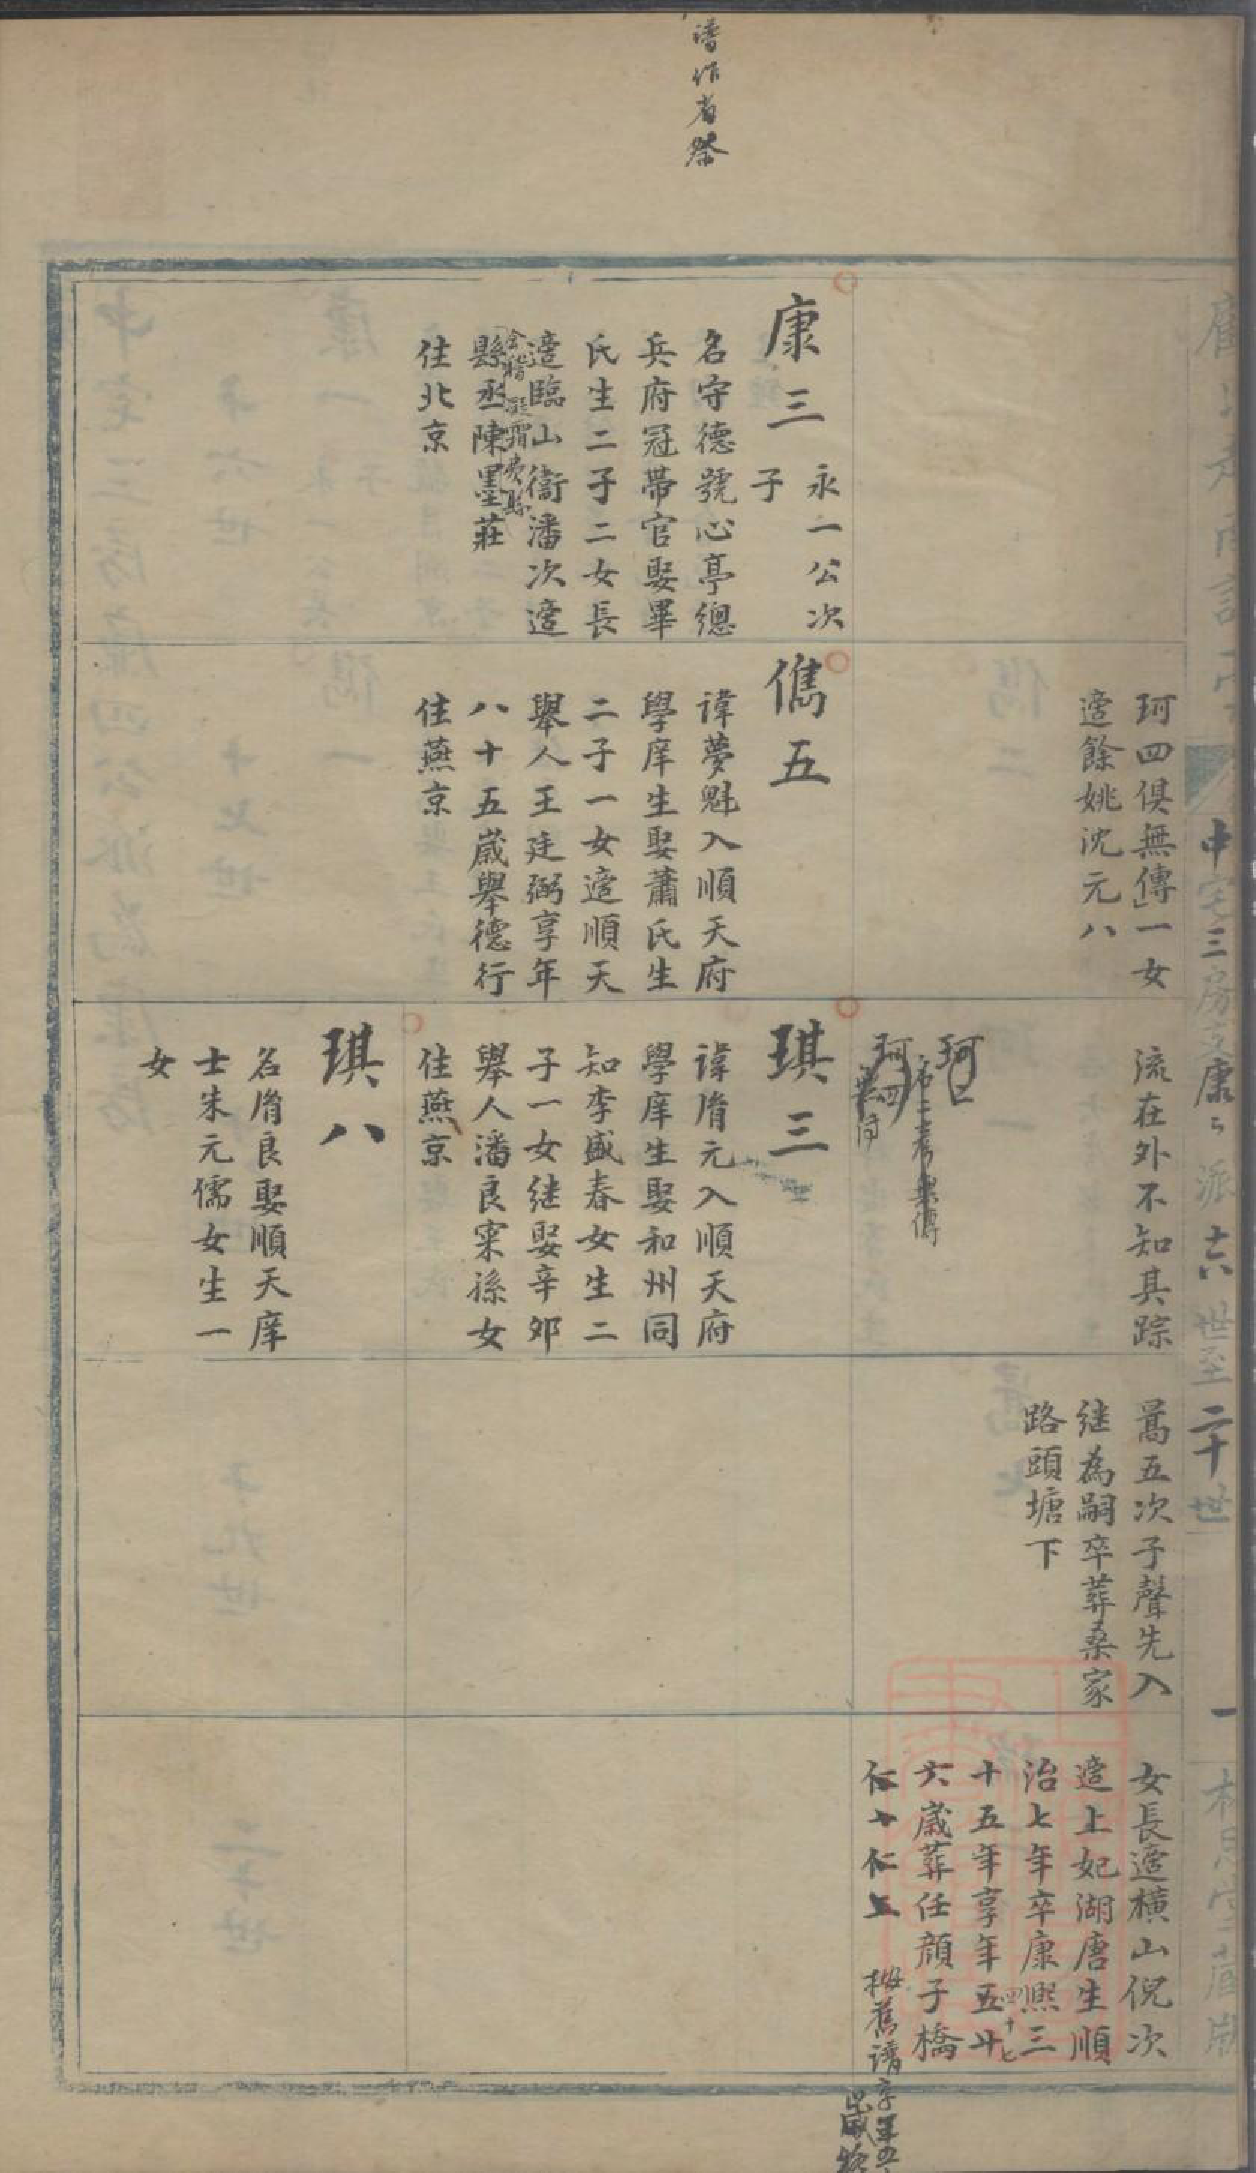 譜作者榮
中宅三房之康三派十六世至二十世
一
珂四俱無傳一女
適餘姚沈元八
流在外不知其踪
暠五次子聲先入
继為嗣卒葬桑家
路頭塘下
女長適橫山倪次
適上妃湖唐生順
治七年卒康熙三
十五年享年五十
四十七
六歲葬任顔子橋
仁十仁上
珂四
康三
永一公次
子
名守德號心亭總
兵府冠帶官娶畢
氏生二子二女長
適臨山衞潘次適
會稽
縣丞陳墨莊
住北京
儁五
諱夢魁入順天府
學庠生娶蕭氏生
二子一女適順天
舉人王廷弼享年
八十五歲舉德行
住燕京
琪三
諱胤元入順天府
學庠生娶和州同
知李盛春女生二
子一女继娶辛郊
舉人潘良寀孫女
住燕京
琪八
名胤良娶順天庠
士朱元儒女生一
女